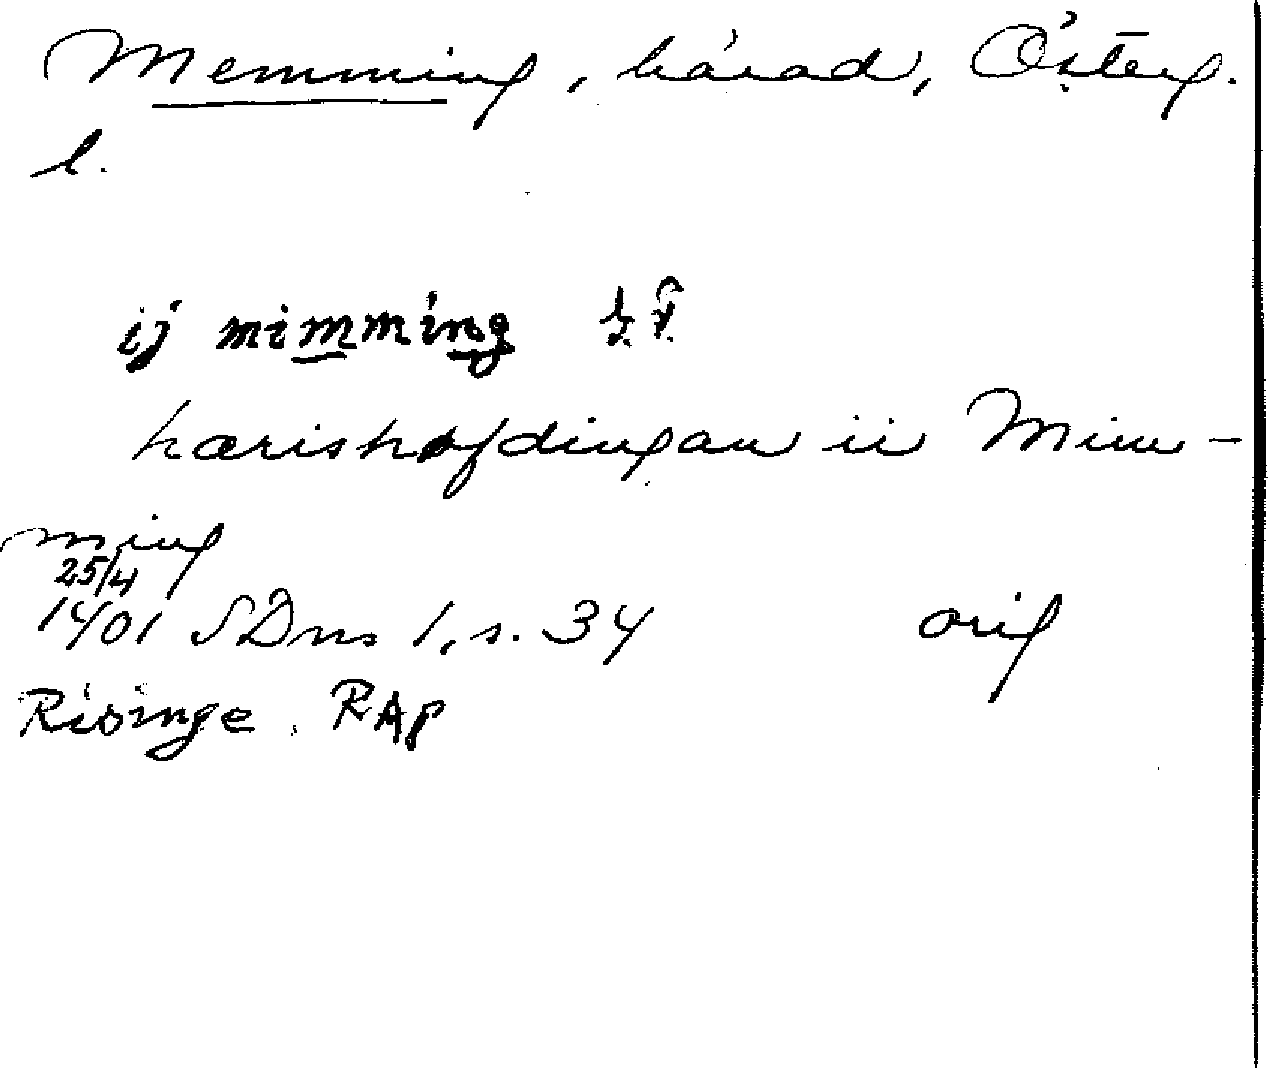 Memming, härad, Österg.
l.
ij mimming
hærishøfdingan ii Mim-
ming
25/4
1401 SDns 1, s. 34 orig
Risinge. RAp